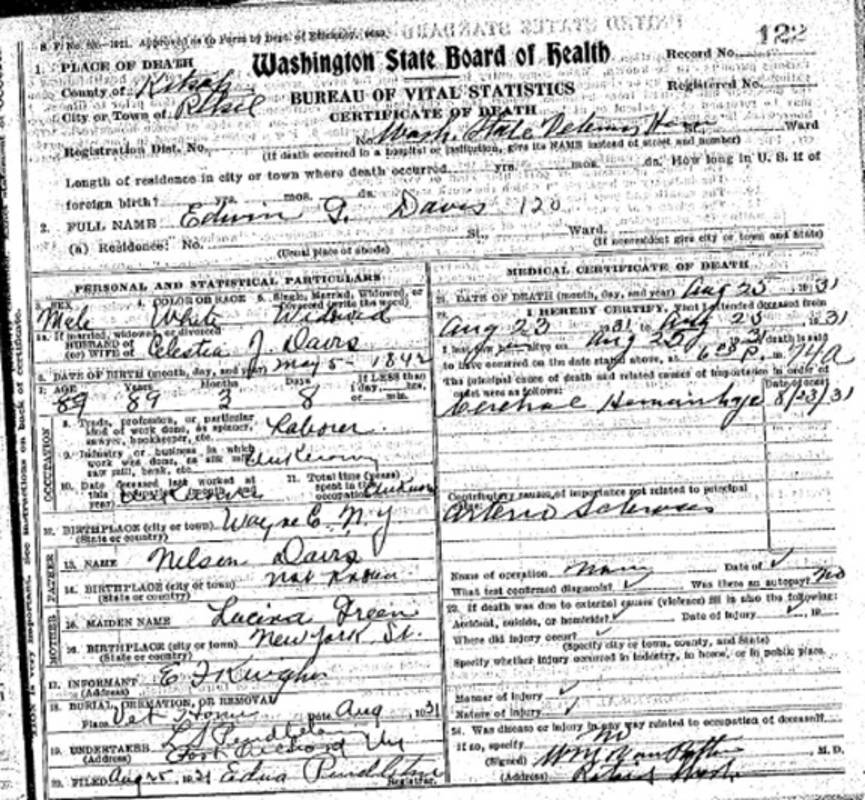 S. F. No. Approved as to Form by Dept. of Efficiency,
UNITED STATES STANDARD
122
1. PLACE OF DEATH
Washington State Board of Health
Record No.
County of Kitsap
BUREAU OF VITAL STATISTICS
Registered No.
City or Town of Retsil
CERTIFICATE OF DEATH
Registration Dist. No. No. Wash. State Veterans Home St. Ward
(If death occurred in a hospital or institution, give its NAME instead of street and number)
Length of residence in city or town where death occurred yrs. mos. ds. How long in U. S. if of
foreign birth? yrs. mos. ds.
2. FULL NAME Edwin G. Davis 120
(a) Residence: No. St., Ward.
(Usual place of abode) (If nonresident give city or town and State)
PERSONAL AND STATISTICAL PARTICULARS
3. SEX 4. COLOR OR RACE 5. Single, Married, Widowed, or Divorced (write the word)
Male White Widowed
5a. If married, widowed, or divorced
HUSBAND of
(or) WIFE of Celestia J. Davis
6. DATE OF BIRTH (month, day, and year) May 5 - 1842
7. AGE Years Months Days If LESS than
1 day, hrs.
89 89 3 8 or min.
OCCUPATION
8. Trade, profession, or particular
kind of work done, as spinner, Laborer
sawyer, bookkeeper, etc.
9. Industry or business in which
work was done, as silk mill, Unknown
saw mill, bank, etc.
10. Date deceased last worked at 11. Total time (years)
this spent in this
year) Unknown occupation Unknown
12. BIRTHPLACE (city or town) Wayne C. N.Y
(State or country)
FATHER
13. NAME Nelson Davis
14. BIRTHPLACE (city or town) not known
(State or country)
MOTHER
15. MAIDEN NAME Lucina Green
16. BIRTHPLACE (city or town) New York St.
(State or country)
17. INFORMANT
(Address)
18. BURIAL, CREMATION, OR REMOVAL
Place Vet Home Date Aug 1931
19. UNDERTAKER
(Address) Port Orchard
20. FILED Aug 25, 1931 Edna Pendleton
Registrar.
MEDICAL CERTIFICATE OF DEATH
21. DATE OF DEATH (month, day, and year) Aug 25, 1931
22. I HEREBY CERTIFY, That I attended deceased from
Aug 23 1931 to Aug 25 1931
I last saw alive on Aug 25 1931 death is said
to have occurred on the date stated above, at m. 74a
The principal cause of death and related causes of importance in order of
onset were as follows: Date of onset
Cerebral Hemorrhage 8/23/31
Contributory causes of importance not related to principal
Arterio Sclerosis
Name of operation None Date of
What test confirmed diagnosis? Was there an autopsy? No
23. If death was due to external causes (violence) fill in also the following:
Accident, suicide, or homicide? Date of injury , 19
Where did injury occur?
(Specify city or town, county, and State)
Specify whether injury occurred in industry, in home, or in public place.
Manner of injury
Nature of injury
24. Was disease or injury in any way related to occupation of deceased?
If so, specify No
(Signed) M. D.
(Address) Retsil Wash.